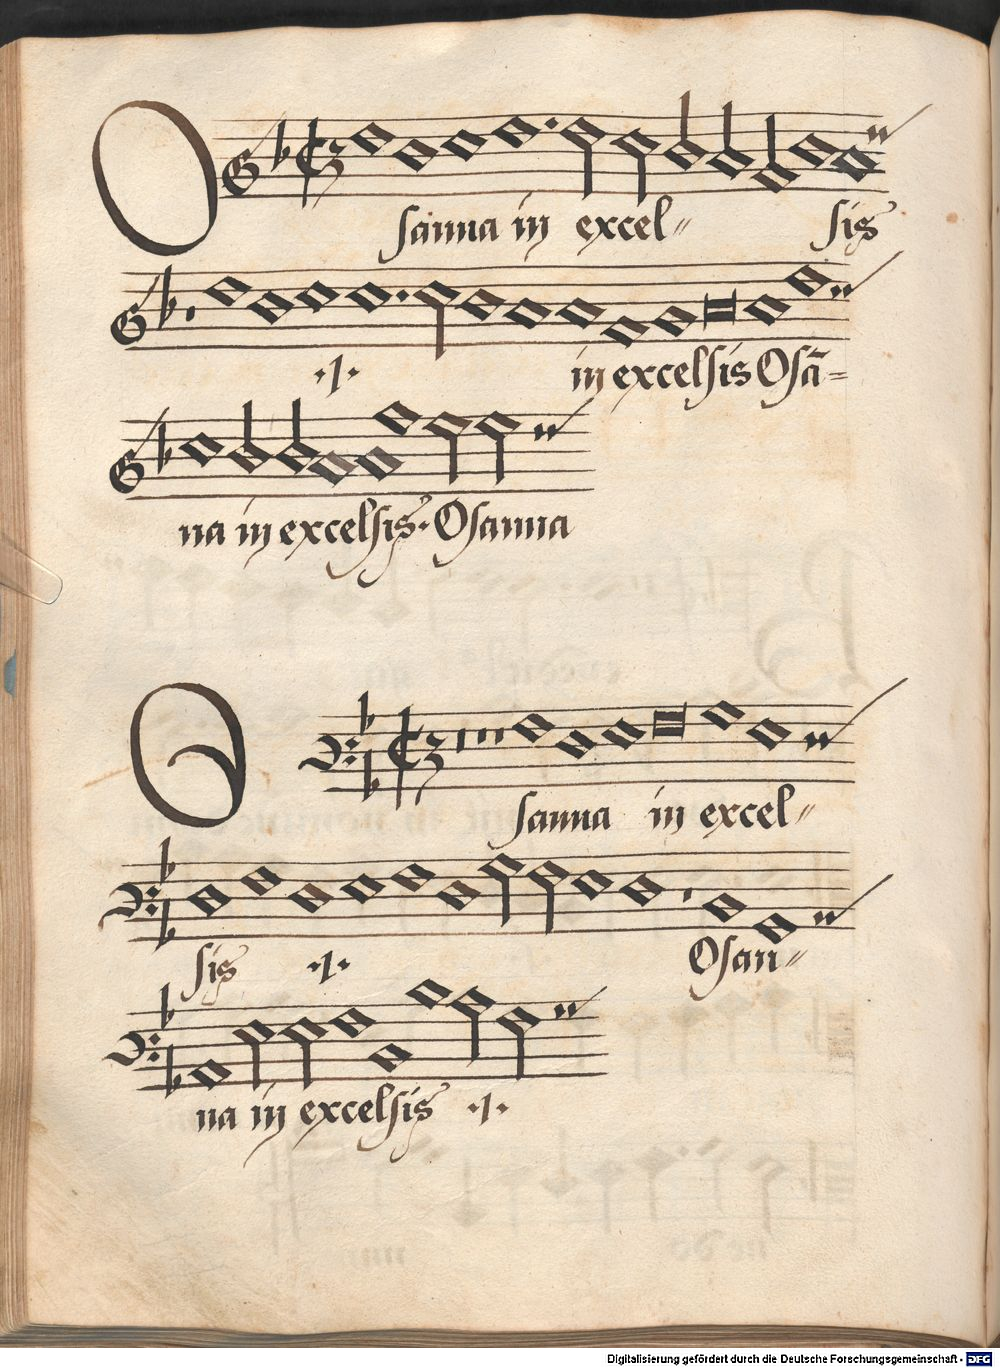 Osanna in excel〃 sis
·1· in excelsis Osã=
na in excelsis· Osanna
Osanna in excel〃
sis ·1· Osan〃
na in excelsis ·1·
Digitalisierung gefördert durch die Deutsche Forschungsgemeinschaft - DFG